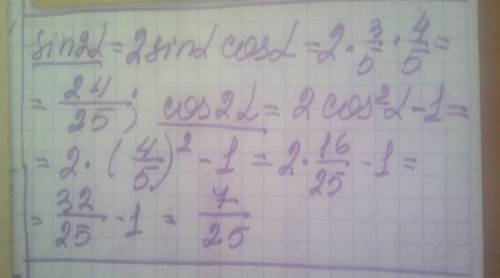 sin2α = 2sinα cosα = 2 · 3/5 · 4/5 =
= 24/25; cos2α = 2cos²α - 1 =
= 2 · (4/5)² - 1 = 2 · 16/25 - 1 =
= 32/25 - 1 = 7/25